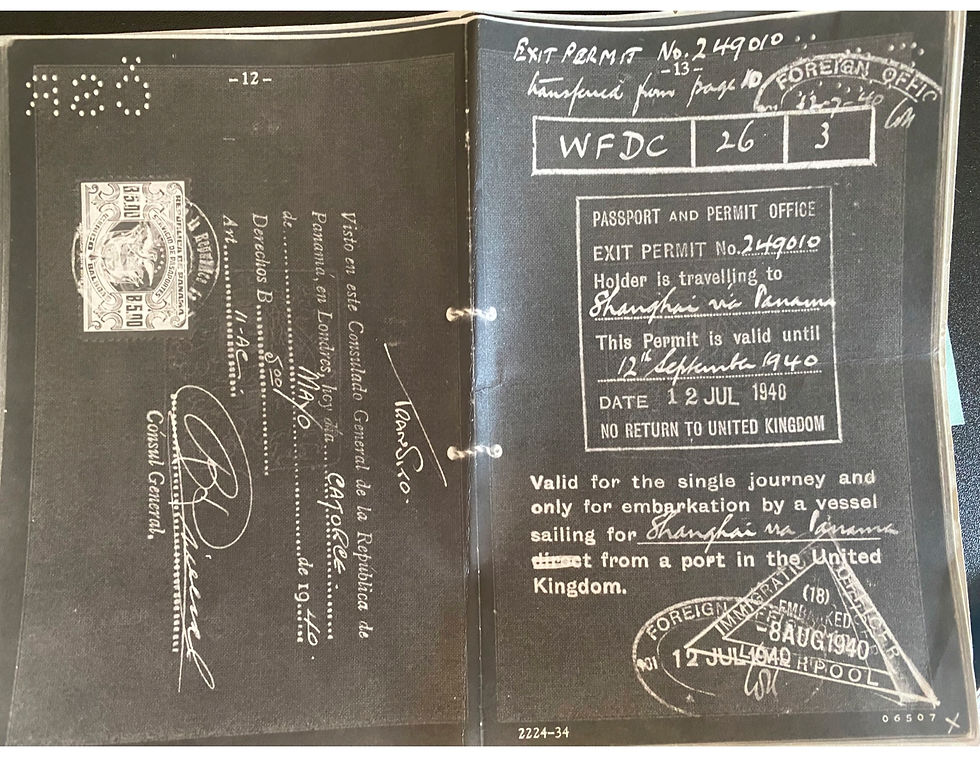 -12-
Transito.
Visto en este Consulado General de la República de
Panamá, en Londres, hoy día CATORCE
de MAYO de 1940.
Derechos B. 5.00
Art. 11-AC
Cónsul General.
REPUBLICA DE PANAMA
B5.00 B5.00
EXIT PERMIT No. 249010
-13-
transferred from page 10
FOREIGN OFFIC
12-7-40
WFDC 26 3
PASSPORT AND PERMIT OFFICE
EXIT PERMIT No. 249010
Holder is travelling to
Shanghai via Panama
This Permit is valid until
12th September 1940
DATE 12 JUL 1940
NO RETURN TO UNITED KINGDOM
Valid for the single journey and
only for embarkation by a vessel
sailing for Shanghai via Panama
direct from a port in the United
Kingdom.
FOREIGN
12 JUL 1940
IMMIGRATION OFFICER
(18)
EMBARKED
-8 AUG 1940
LIVERPOOL
2224-34
06507 X